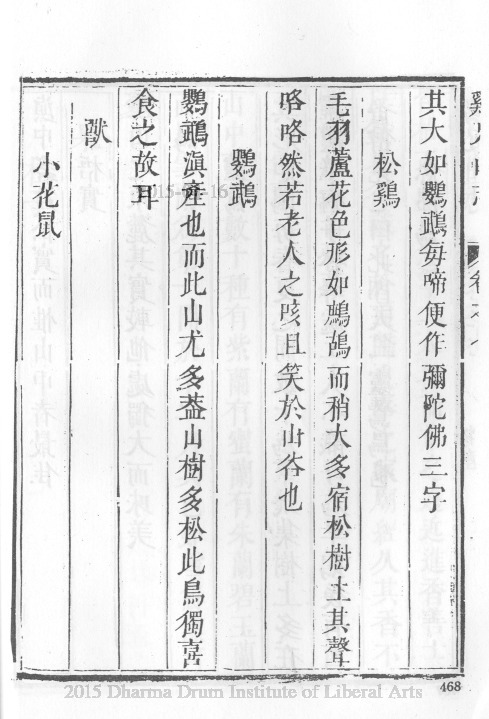 其大如鸚鵡每啼便作彌陀佛三字
松鷄
毛羽蘆花色形如鷓鴣而稍大多宿松樹上其聲
咯咯然若老人之咳且笑於山谷也
鸚鵡
鸚鵡滇產也而此山尤多葢山樹多松此鳥獨喜
食之故耳
獸
小花鼠
468
2015 Dharma Drum Institute of Liberal Arts